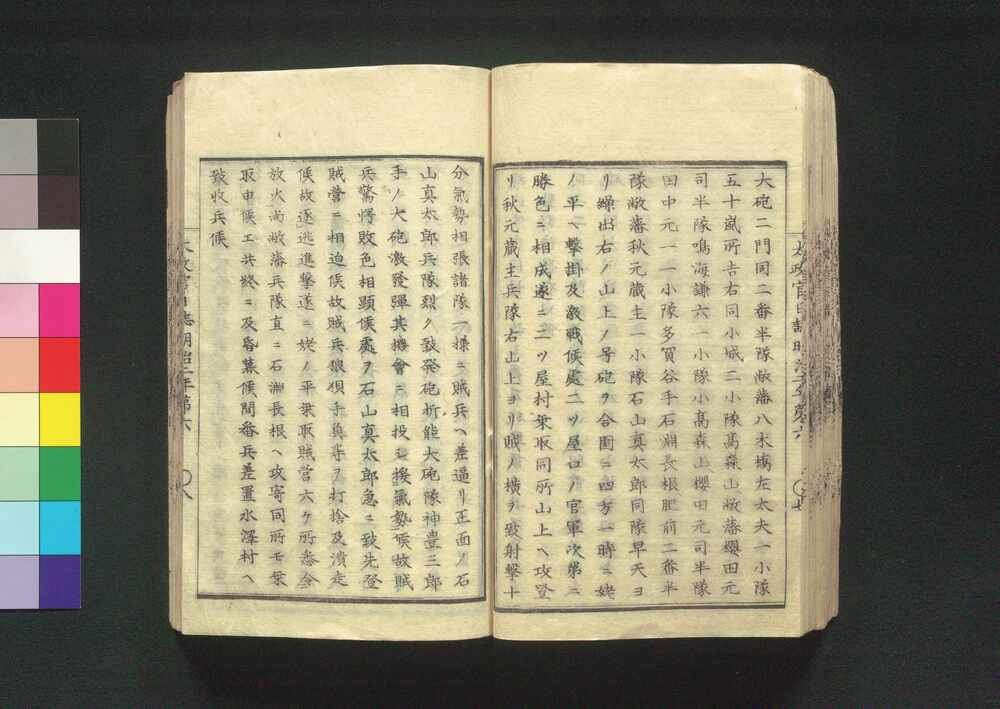 大砲二門同二番半隊敝藩八木橋左太夫一小隊
五十嵐所吉右同小城二小隊髙森山敝藩櫻田元
司半隊鳴海謙六一小隊小髙森山櫻田元司半隊
田中元一一小隊多賀谷手石淵長根肥前二番半
隊敝藩秋元蔵主一小隊石山真太郎同隊早天ヨ
リ繰出右ノ山上ノ号砲ヲ合圖ニ四方一時ニ姥
ノ平ヘ撃掛及激戦候處二ツ屋口ノ官軍次第ニ
勝色ニ相成遂ニ二ツ屋村乗取同所山上ヘ攻登
リ秋元蔵主兵隊右山上ヨリ賊ノ横ヲ致射撃十
分氣勢相張諸隊一様ニ賊兵ヘ差逼リ正面ノ石
山真太郎兵隊烈ク致発砲折能大砲隊神豊三郎
手ノ大砲激發彈其機會ニ相投シ援氣勢候故賊
兵驚愕敗色相顕候處ヲ石山真太郎急ニ致先登
賊営ニ相迫候故賊兵狼狽手負等ヲ打捨及潰走
候故逐逃進撃遂ニ姥ノ平乗取賊営六ケ所悉全
放火尚敝藩兵隊直ニ石淵長根ヘ攻寄同所モ乗
取申候エ共終ニ及昏暮候間番兵差置水澤村ヘ
致收兵候
太政官日誌明治二年第六 〇八